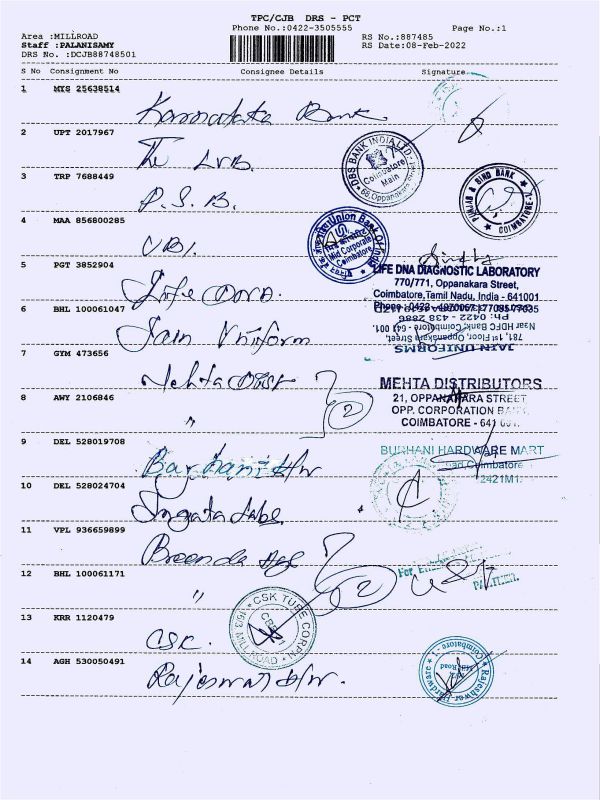 TPC/CJB DRS - PCT
Phone No.:0422-3505555
Page No.:1
Area :MILLROAD
RS No.:887485
Staff :PALANISAMY
RS Date:08-Feb-2022
DRS No. :DCJB88748501
S No Consignment No Consignee Details Signature
1 MYS 25638514
Karnataka Bank
2 UPT 2017967
The LVB.
DBS BANK INDIA LTD
Coimbatore
Main
3 TRP 7688449
P.S.B.
PUNJAB & SIND BANK
COIMBATORE
4 MAA 856800285
UBI.
Union Bank Of India
Mid Corporate
Coimbatore
5 PGT 3852904
Life DNA.
LIFE DNA DIAGNOSTIC LABORATORY
770/771, Oppanakara Street,
Coimbatore,Tamil Nadu, India - 641001
6 BHL 100061047
Jain Uniform
JAIN UNIFORMS
781, 1st Floor, Oppanakara Street,
Near HDFC Bank, Coimbatore - 641 001.
Ph: 0422 - 438 2886
7 GYM 473656
Mehta Dist
MEHTA DISTRIBUTORS
21, OPPANAKARA STREET
OPP. CORPORATION BANK,
COIMBATORE - 641 001.
8 AWY 2106846
"
2
9 DEL 528019708
Burhani H/W
BURHANI HARDWARE MART
Coimbatore
10 DEL 528024704
11 VPL 936659899
12 BHL 100061171
"
2
For
13 KRR 1120479
CSK.
CSK TUBE CORPN
CBE-1
163 MILL ROAD
14 AGH 530050491
Rajeswar H/W.
Rajeshwar Hardware
Coimbatore - 1